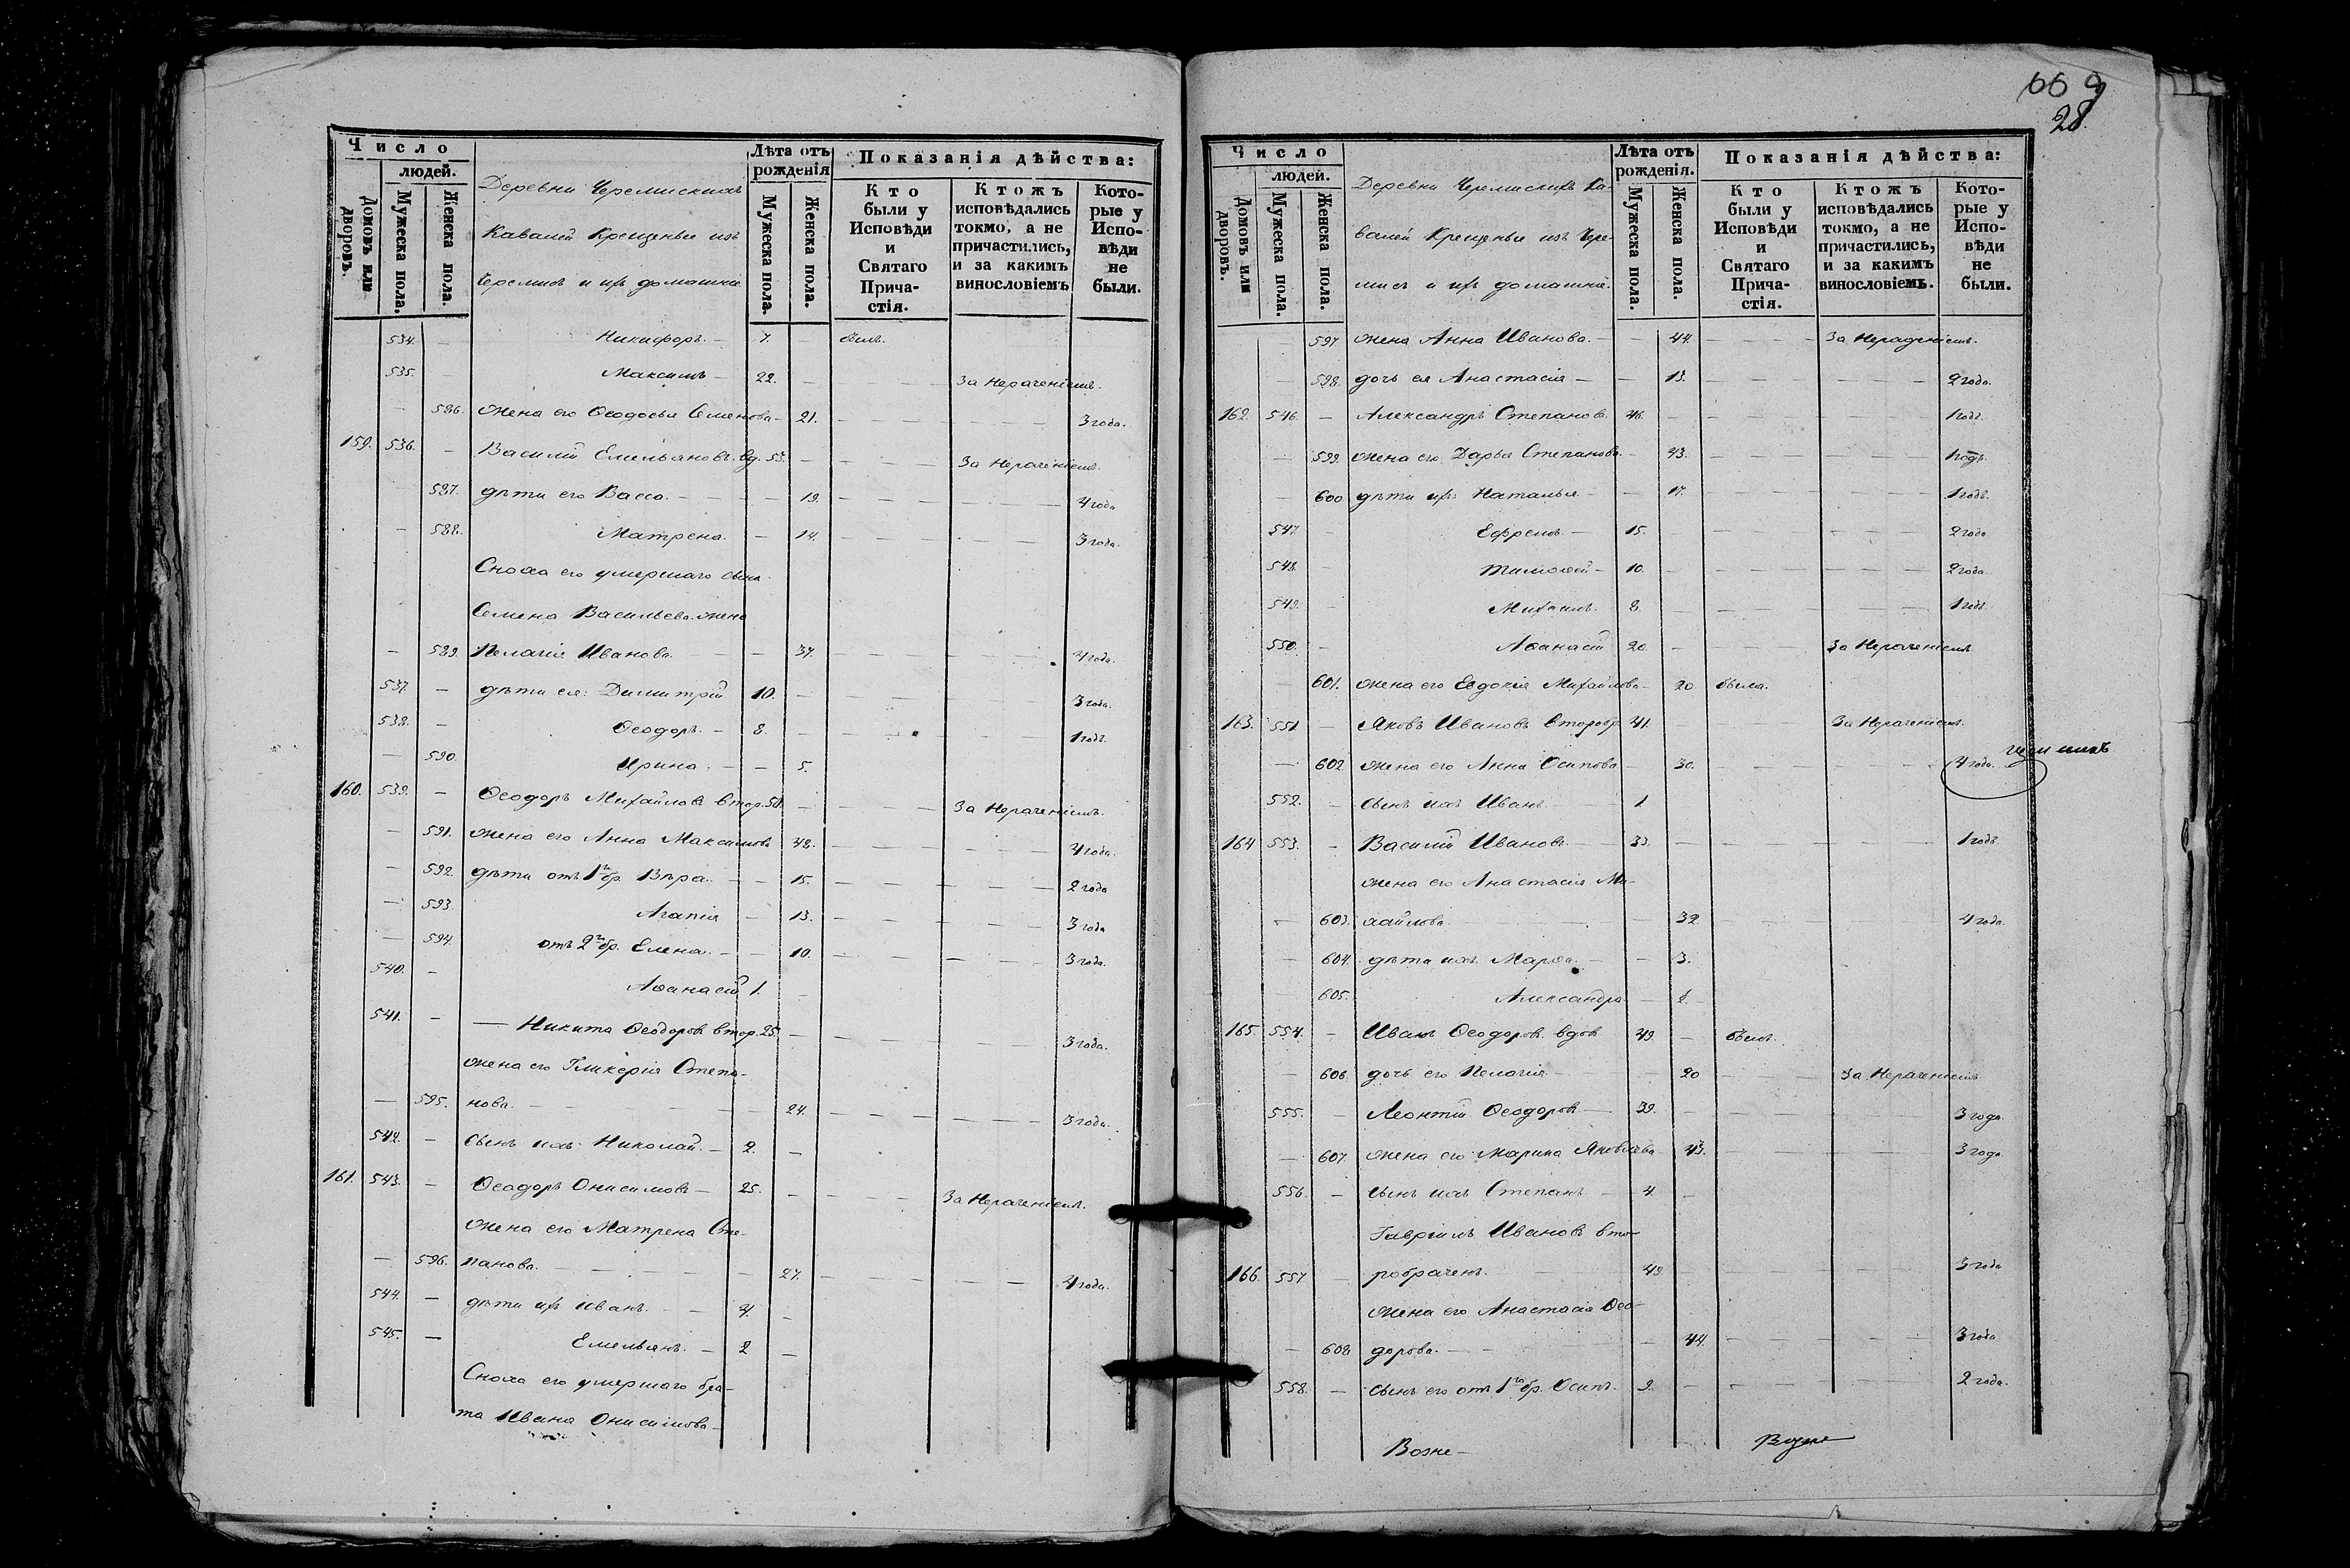 Число
людей.
Домовъ или дворовъ.
Мужеска пола.
Женска пола.
Деревни Черемискихъ
Кавалей Крещеные изъ
Черемисъ и ихъ домашніе
Лѣта отъ рожденія
Мужеска пола.
Женска пола.
Показанія дѣйства:
Кто были у Исповѣди и Святаго Прича-стія.
Ктожъ исповѣдались токмо, а не причастились, и за какимъ винословіемъ
Кото-рые у Испо-вѣди не были.
534. — Никифоръ. — 7. — былъ.
535. — Максимъ — 22. — За Нераченіемъ.
— 586. жена его Ѳеодосья Семенова — 21. 3 года.
159. 536. — Василій Емельяновъ вд. 53. — За Нераченіемъ.
587. дѣти его Васса. — 19. 4 года
— 588. Матрена. — 14. 3 года.
Сноха его умершаго сына
Семена Васильева жена
— 589. Пелагія Иванова. — 37. 4 года.
537. — дѣти ея: Димитрій 10. — 3 года.
538. — Ѳеодоръ. — 8. — 1 годъ.
— 590. Ирина. — — 5.
160. 539. — Ѳеодоръ Михайловъ втор. 50. — За Нераченіемъ.
— 591. жена его Анна Максимова 48. 4 года.
— 592. дѣти отъ 1го бр. Вѣра. — 15. 2 года
— 593. Агапія — 13. 3 года
— 594. отъ 2го бр. Елена. — 10. 3 года.
540. — Аѳанасій 1. —
541. — — Никита Ѳеодоровъ втор. 25. — 3 года.
жена его Гликерія Степа-
— 595. нова. — 24. 3 года.
542. — сынъ ихъ Николай. — 2. —
161. 543. — Ѳеодоръ Онисимовъ — 25. — За Нераченіемъ.
жена его Матрена Сте-
— 596. панова. — 27. 4 года.
544. — дѣти ихъ Иванъ. — 4. —
545. — Емельянъ. — 2 —
Сноха его умершаго бра-
та Ивана Онисимова
28.
Число
людей.
Домовъ или дворовъ.
Мужеска пола.
Женска пола.
Деревни Черемискихъ Ка-
валей Крещеные изъ Чере-
мисъ и ихъ домашніе.
Лѣта отъ рожденія.
Мужеска пола.
Женска пола.
Показанія дѣйства:
Кто были у Исповѣди и Святаго Прича-стія.
Ктожъ исповѣдались токмо, а не причастились, и за какимъ винословіемъ.
Кото-рые у Испо-вѣди не были.
— 597 жена Анна Иванова. — — 44. За Нераченіемъ.
— 598. дочь ея Анастасія — — 13. 2 года.
162. 546. — Александръ Степановъ. 46. 1 годъ.
— 599. жена его Дарья Степанова. — 43. 1 годъ.
— 600 дѣти ихъ: Наталья — — 17. 1 годъ.
547. — Ефремъ. — 15. 2 года
548. — Тимоѳей — 10. 2 года.
549. — Михаилъ. 8. 1 годъ.
550. — Аѳанасій 20. — За Нераченіемъ
— 601. жена его Евдокія Михайлова — 20 была.
163. 551 — Яковъ Ивановъ Второбр. 41. За Нераченіемъ.
— 602. жена его Анна Осипова — 30. 4 года.
552. — сынъ ихъ Иванъ — 1
164 553. — Василій Ивановъ. — 33. 1 годъ
жена его Анастасія Ми-
— 603. хайлова. — 32 4 года.
— 604. дѣти ихъ. Марѳа. — — 3.
605. Александра — 1.
165. 554. — Иванъ Ѳеодоровъ вдов 49. — былъ.
— 606. дочь его Пелагія. — 20 За Нераченіемъ
555. — Леонтій Ѳеодоровъ — 39. 3 года
— 607. жена его Марина Яковлева 43. 3 года
556. — сынъ ихъ Степанъ — 4. —
Гавріилъ Ивановъ вто-
166. 557 — робраченъ. 49. 3 года
жена его Анастасія Ѳео-
— 608 дорова. — — 44. 3 года
558. — сынъ его отъ 1го бр. Осипъ. 9. 2 года.
Возне-